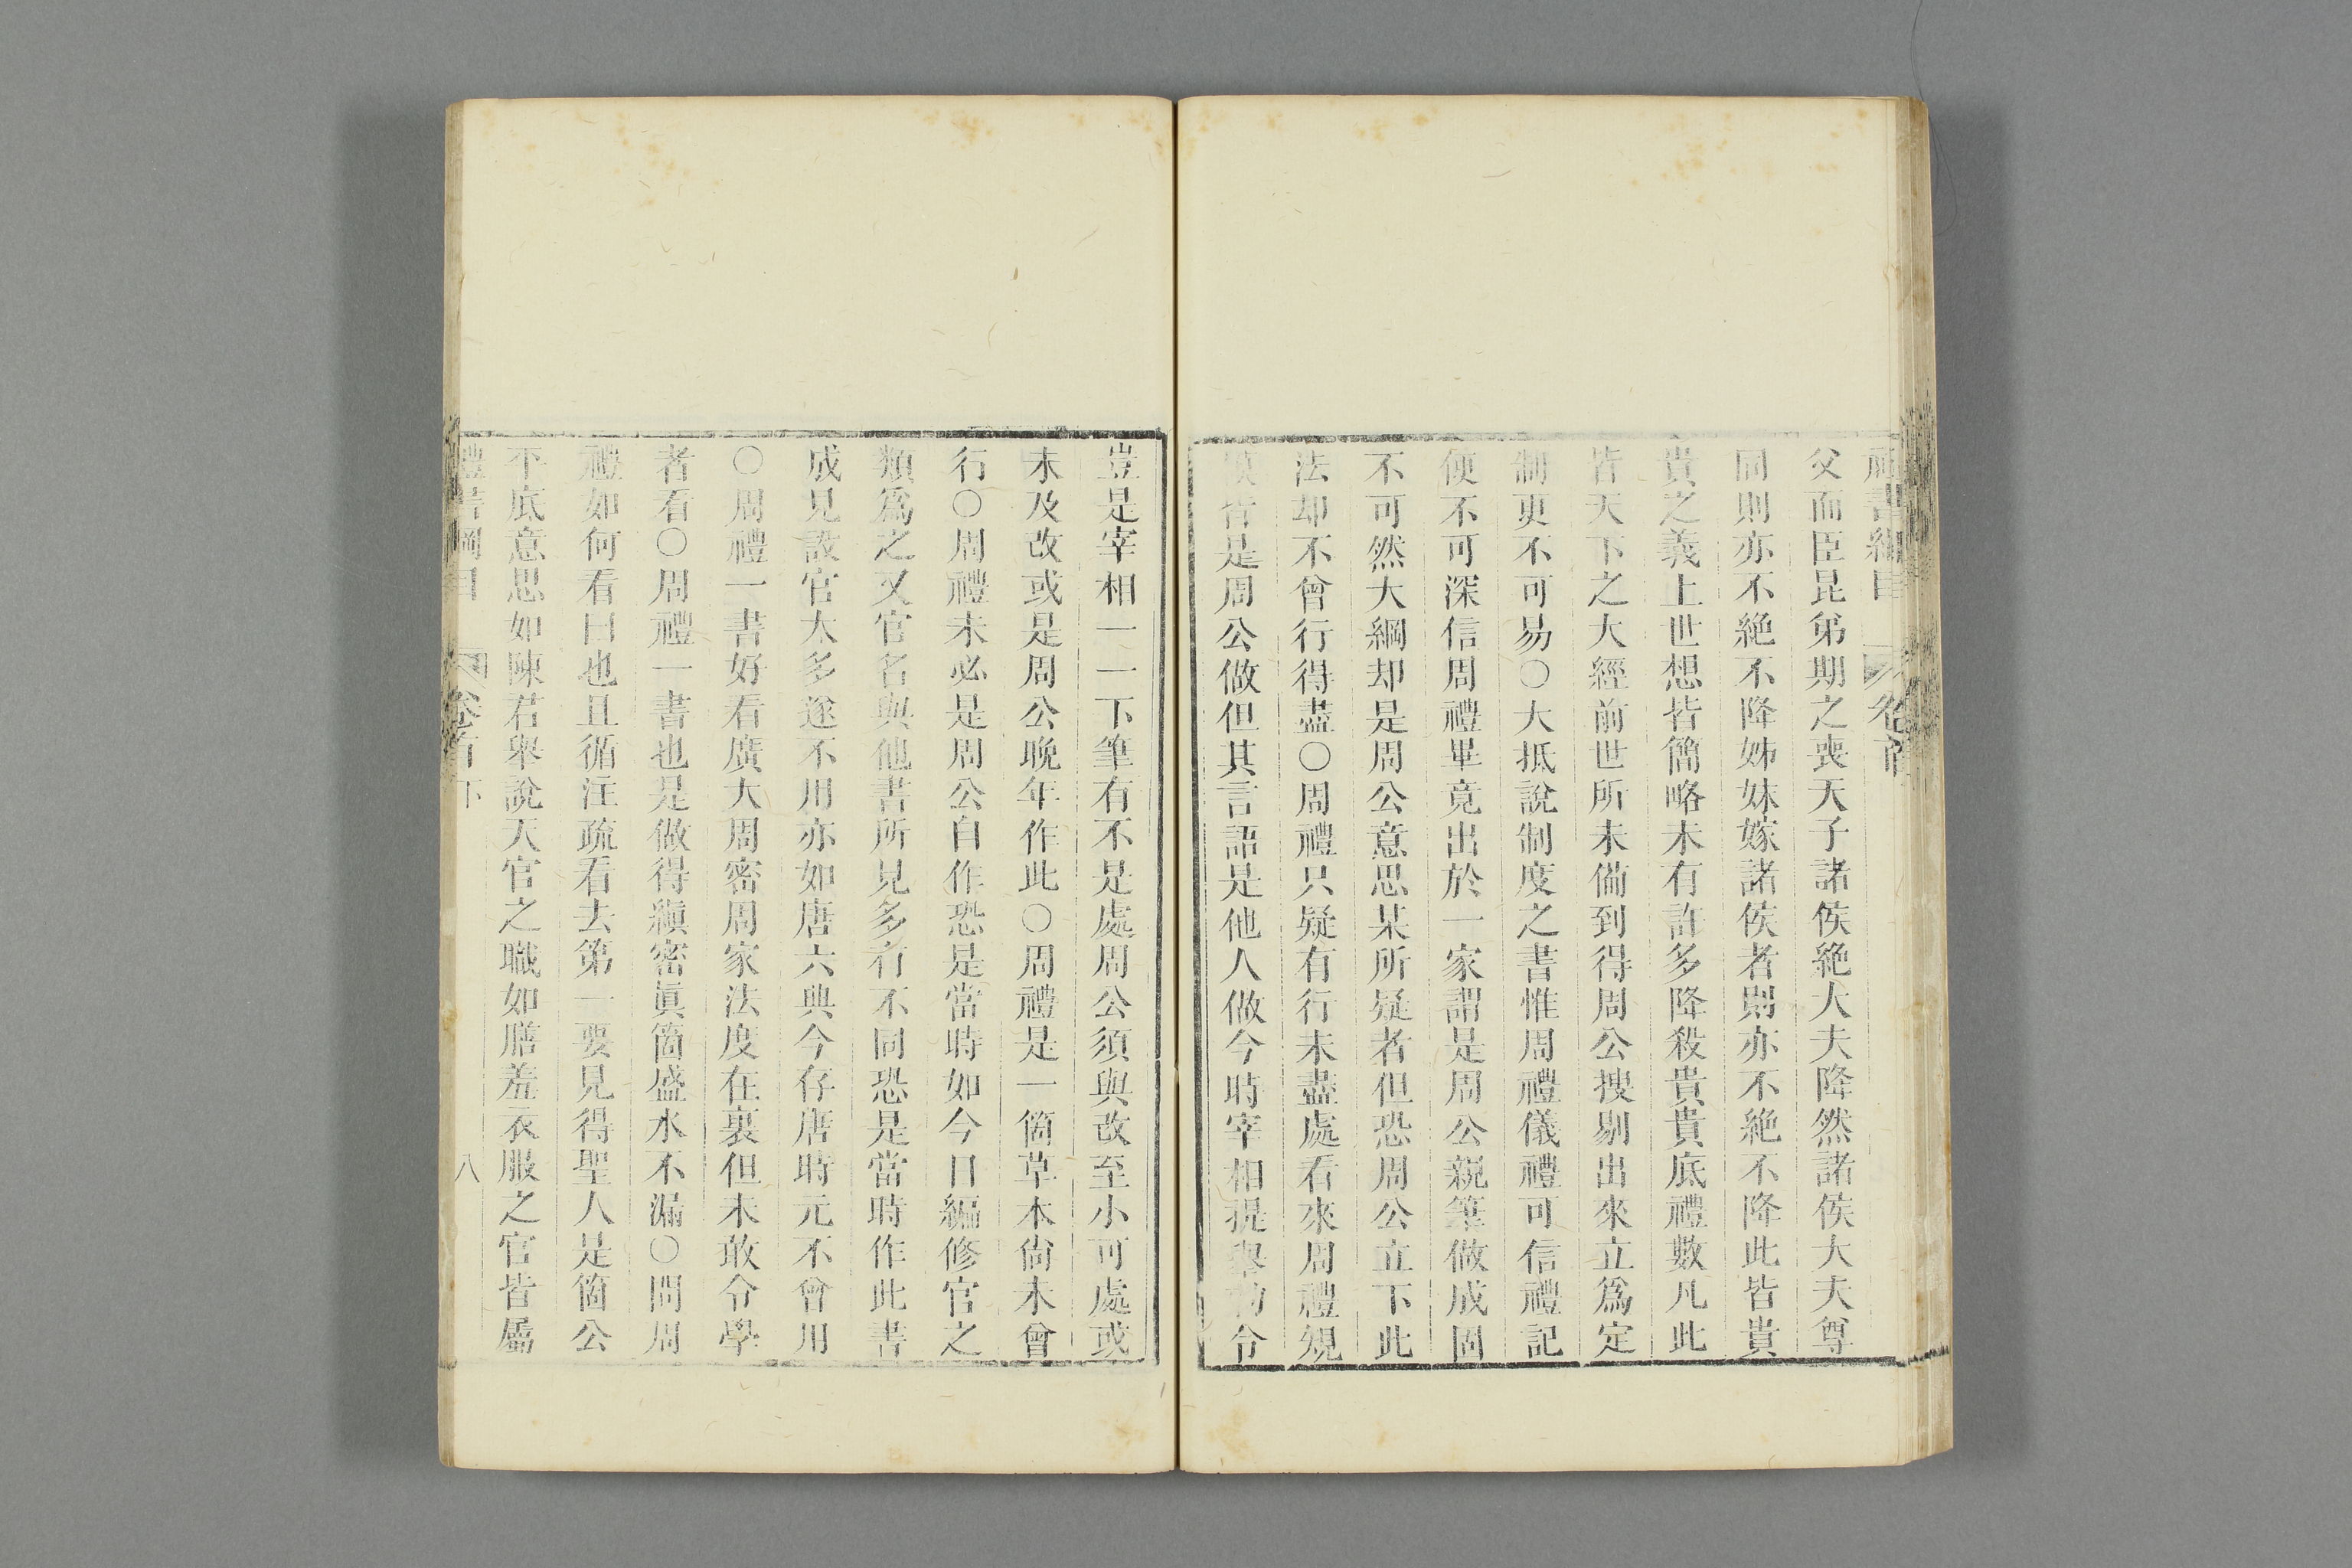 禮書綱目 卷首
父而臣昆弟期之喪天子諸侯絶大夫降然諸侯大夫尊
同則亦不絶不降姊妹嫁諸侯者則亦不絶不降此皆貴
貴之義上世想皆簡略未有許多降殺貴貴底禮數凡此
皆天下之大經前世所未備到得周公搜剔出來立爲定
制更不可易○大抵說制度之書惟周禮儀禮可信禮記
便不可深信周禮畢竟出於一家謂是周公親筆做成固
不可然大綱却是周公意思某所疑者但恐周公立下此
法却不曾行得盡○周禮只疑有行未盡處看來周禮規
模皆是周公做但其言語是他人做今時宰相提舉勑令
豈是宰相一一下筆有不是處周公須與改至小可處或
未及改或是周公晚年作此○周禮是一箇草本尙未曾
行○周禮未必是周公自作恐是當時如今日編修官之
類爲之又官名與他書所見多有不同恐是當時作此書
成見設官太多遂不用亦如唐六典今存唐時元不曾用
○周禮一書好看廣大周密周家法度在裏但未敢令學
者看○周禮一書也是做得縝密眞箇盛水不漏○問周
禮如何看曰也且循注疏看去第一要見得聖人是箇公
平底意思如陳君舉說天官之職如膳羞衣服之官皆屬
禮書綱目 卷首下 八